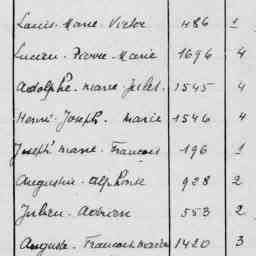 Louis Marie Victor 486 1
Lucien Pierre Marie 1696 4
Adolphe Marie Jules 1545 4
Henri Joseph Marie 1546 4
Joseph Marie François 196 1
Augustin Alphonse 928 2
Julien Adrien 553 2
Auguste François Marie 1420 3